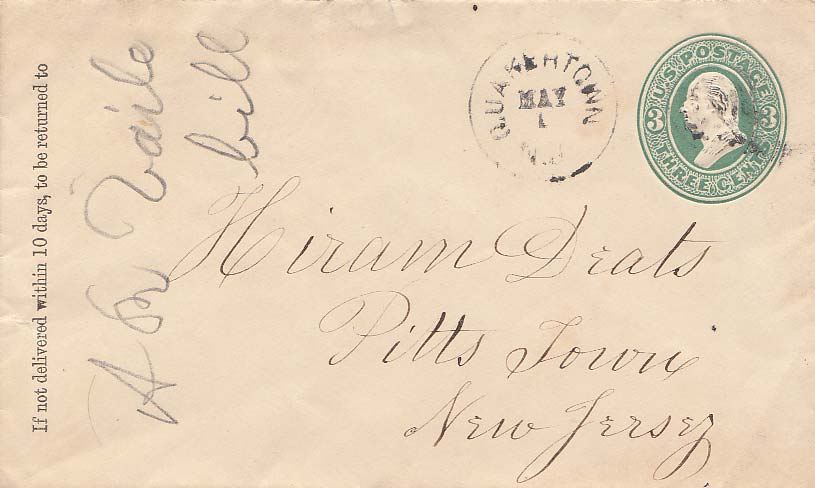 If not delivered within 10 days, to be returned to
bill
QUAKERTOWN
MAY
1
N.J.
U.S. POSTAGE
3 3
THREE CENTS
Hiram Deats
Pitts Town
New Jersey